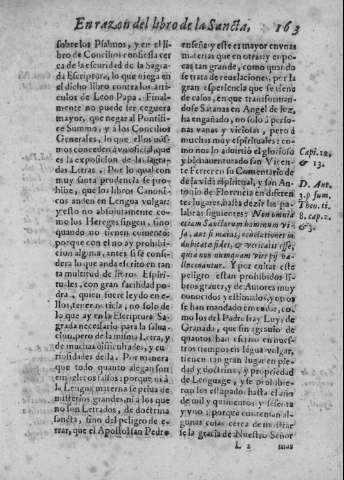 En razon del libro de la Sancta, 163
sobre los Psalmos, y en el li-
bro de Conciliis confiessa cer
ca de la escuridad de la Sagra
da Escriptura, lo que niega en
el dicho libro contra los arti-
culos de Leon Papa. Final-
mente no puede ser ceguera
mayor, que negar al Pontifi-
ce Summo, y à los Concilios
Generales, lo que ellos mis-
mos conceden a
es la exposicion de las sagra-
das Letras. Por lo qual con
muy santa prudencia se pro-
hibe, que los libros Canoni-
cos anden en Lengua vulgar:
y esto no absolutamente co-
mo los Hereges fingen, sino
quando no tienen comento:
porque con el no ay prohibi-
cion alguna, antes si se consi-
dera lo que anda escrito en tan
ta multitud de libros Espiri-
tuales, con gran facilidad po-
dra, quien fuere leydo en e-
llos, tener noticia, no solo de
lo que ay en la Escriptura Sa-
grada necessario para la salua-
cion, pero de la misma Letra, y
de muchas dificultades, y cu-
riosidades della. Por manera
que todo quanto alegan son
embelecos falsos: porque ni à
la Lengua materna se priua de
misterios grandes, ni à los que
no son Letrados, de doctrina
sancta, sino del peligro de e-
rrar, que el Apostol san Pedro
enseña y este es mayor en vnas
materias que en otras: y es po-
cas tan grande, como quando
se trata de reuelaciones, por la
gran esperiencia que se tiene
de casos, en que transforman-
dose Satanas en Angel de luz,
ha engañado, no solo à perso-
nas vanas y viciosas, pero à
muchas muy espirituales: co-
mo nos lo aduirtio el glorioso
y bienauenturado san Vicen-
te Ferrer en su Comentario de
de la vida espiritual, y san An-
tonio de Florencia en diferen
tes lugares, hasta dezir las pa-
labras siguientes:
etiam Sanctarum hominum vi-
sa, aut somnia, reuelationes in
dubitate fidei, & veritatis esse,
quia non nunquam viri pij
Y por euitar este
peligro estan prohibidos li-
bros graues, y de Autores muy
conocidos y estimados, y otros
se han mandado emendar, co-
mo los del Padre fray Luys de
Granada, que sin agrauio de
quantos han escrito en nues-
tros tiempos en lengua vulgar,
tienen tan gran lugar en pie-
dad y doctrina, y propriedad
de Lenguage, y se prohibie-
ron los estampado hasta el año
de mil y quinientos y sesenta
y vno: porque contenian al-
gunas cosas cerca de
se la gracia de Nuestro Señor
Capi. 12.
& 13.
D. Ant.
3. p. sum.
Theo. ti.
8. cap. 2.
& 3.
L 2